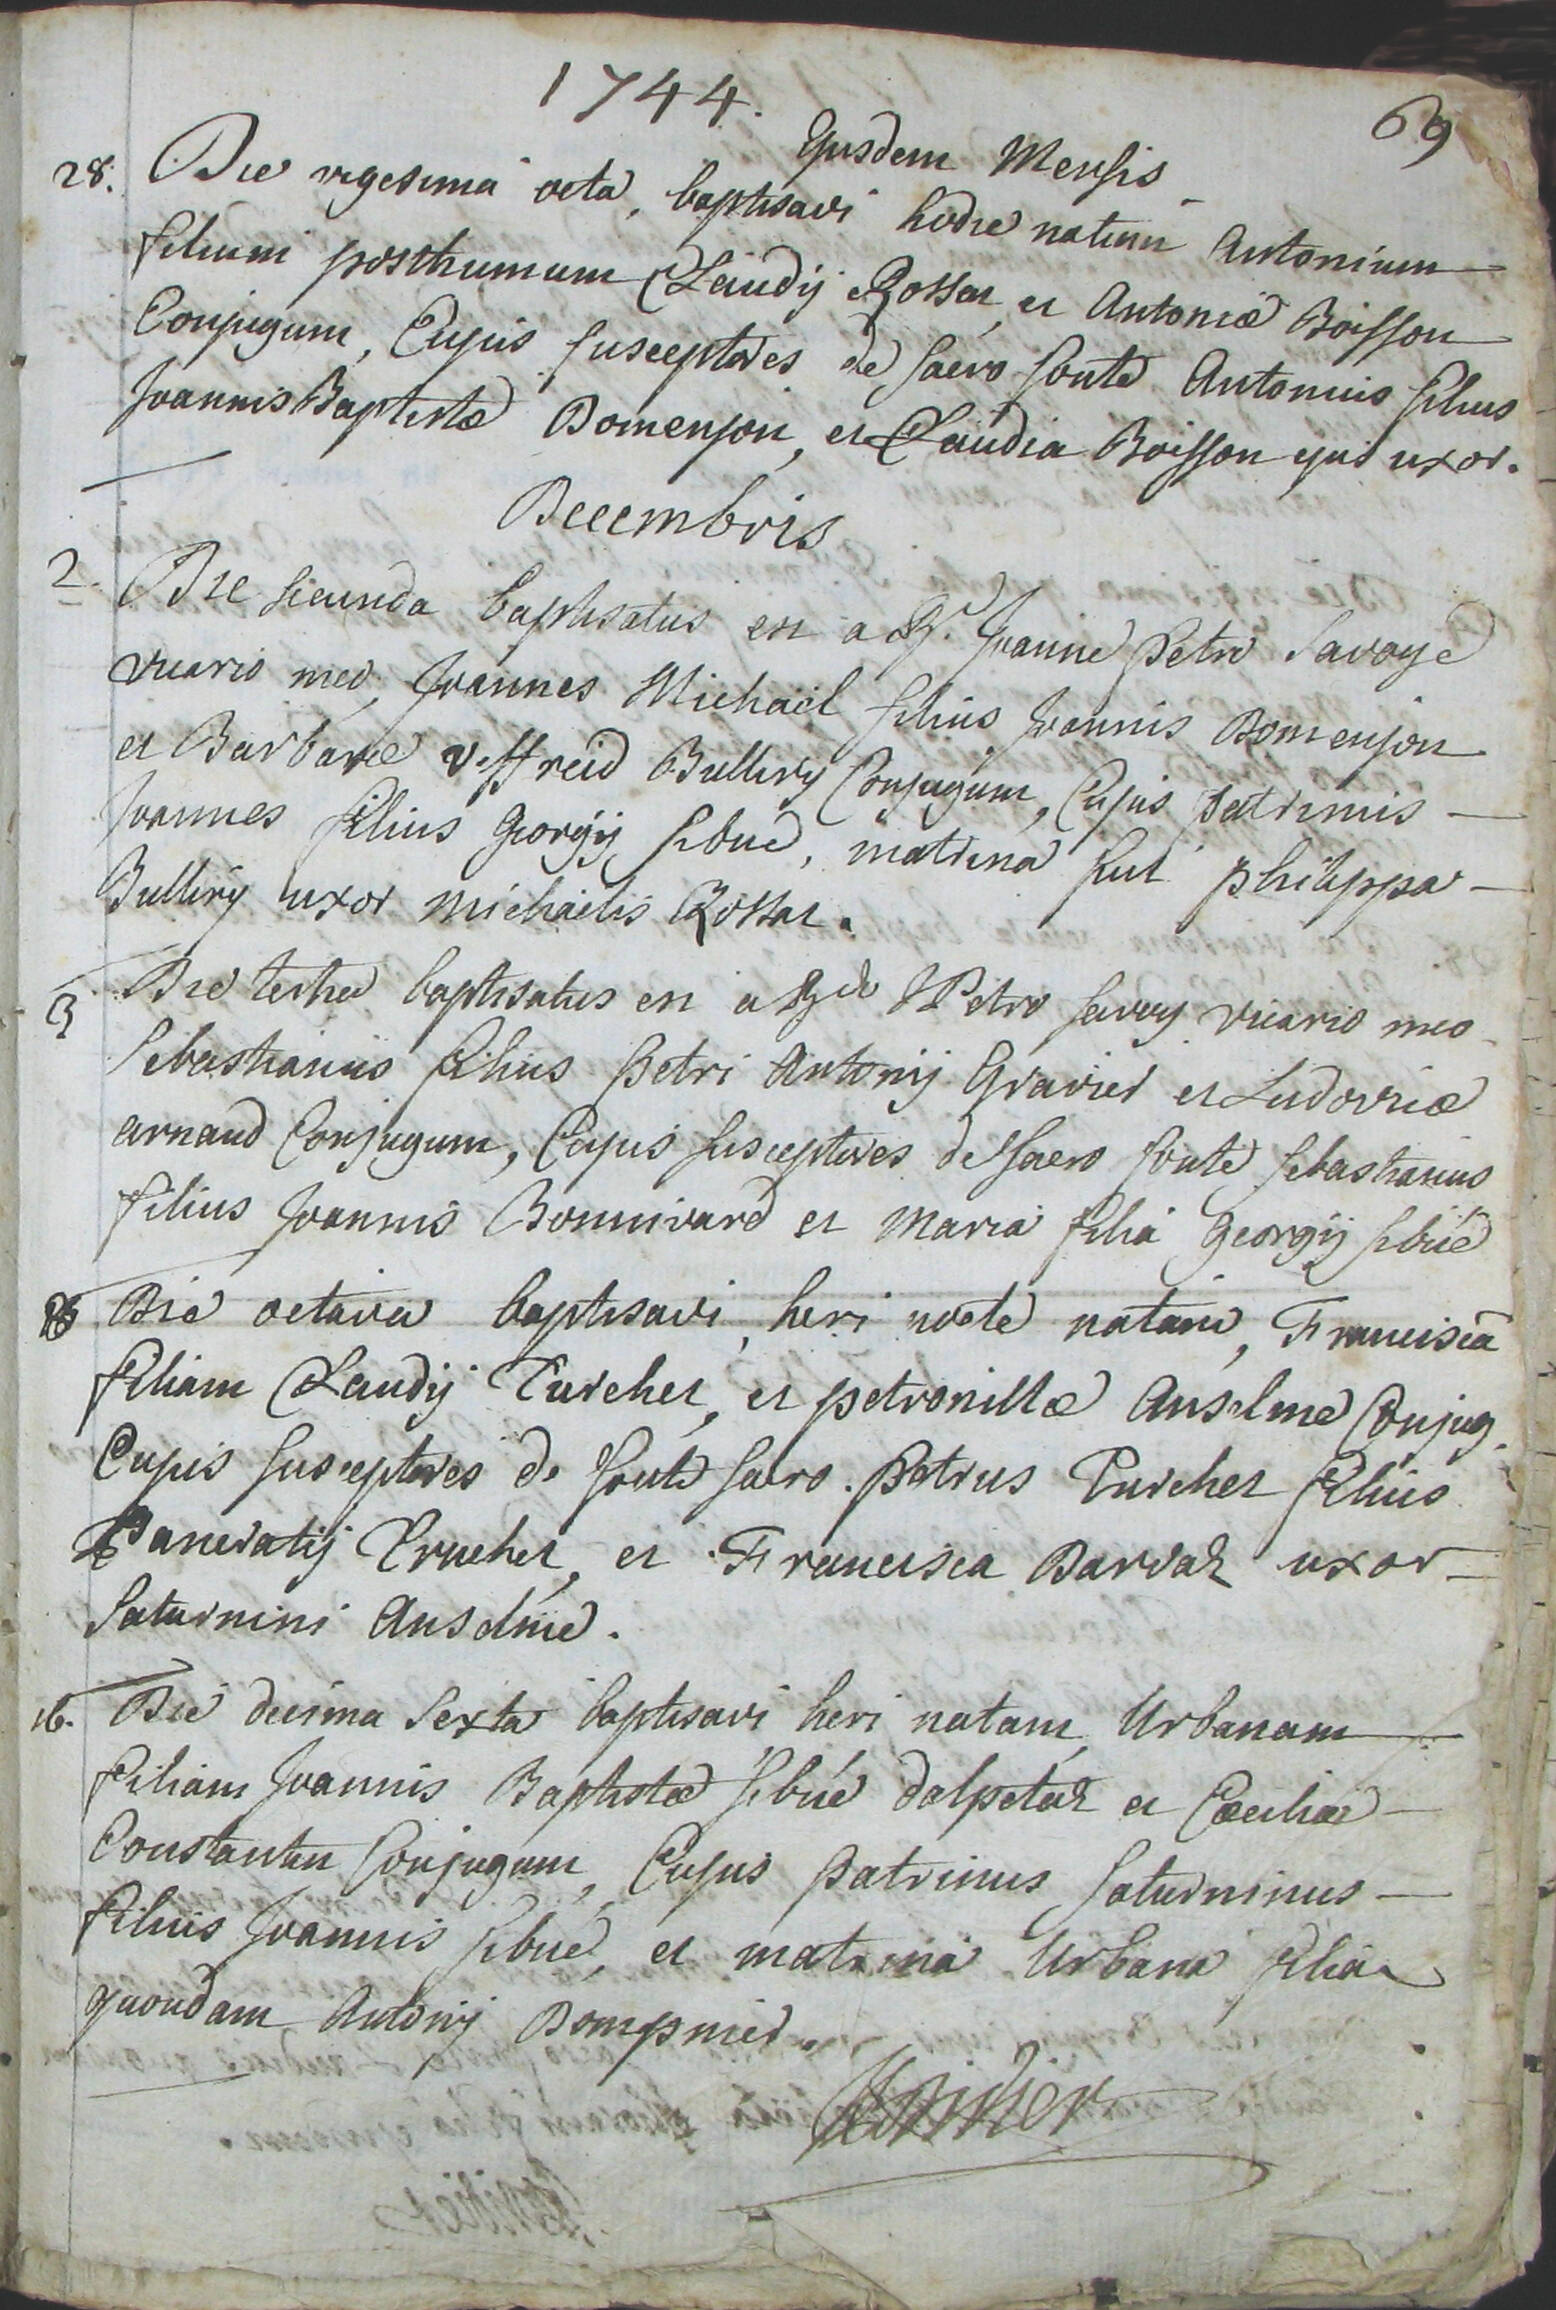 1744.
69
Ejusdem Mensis
28. Die vigesima octa, baptisavi hodie natum Antonium
filium posthumum Claudij Rossat et Antoniæ Boisson
Conjugum, Cujus susceptores de sacro fonte Antonius filius
Joannis Baptistæ Domenjon, et Claudia Boisson ejus uxor.
Decembris
2. Die secunda baptisatus est a Rd. Joanne Petro Savoye
vicario meo, Joannes Michaël filius Joannis Domenjon
et Barbaræ Viffreid Bulliry Conjugum, Cujus patrinus
Joannes filius Georgij Sibué, matrina fuit philippa
Bulliry uxor Michaëlis Rossat.
3 Die tertia baptisatus est a Rdo J Petro Savoy vicario meo
Sebastianus filius Petri Antonij Gravier et Ludovicæ
arnaud Conjugum, Cujus susceptores de sacro fonte Sebastianus
filius Joannis Bonnivard et Maria filia Georgij Sibué
8 Die octava baptisavi, heri nocte natam, Franciscā
filiam Claudij Turchet, et petronillæ Anselme Conjug.
Cujus susceptores de fonte sacro. Petrus Turchet filius
Pancratij Truchet, et Francisca Darvat uxor
Saturnini Anselme.
16. Die decima Sexta baptisavi heri natam Urbanam
filiam Joannis Baptistæ Sibué dalpetaz et Cæciliæ
Constantin Conjugum, Cujus Patrinus Saturninus
filius Joannis Sibué, et matrina Urbana filia
quondam Antonij Dompnier.